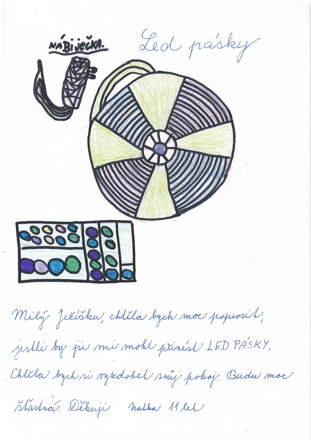 NÁBiječka.
Led pásky
Milý Ježíšku, chtěla bych moc poprosit,
jestli by jsi mi mohl přinést LED PÁSKY.
Chtěla bych si vyzdobit svůj pokoj. Budu moc
šťastná. Děkuji Natka 11 let